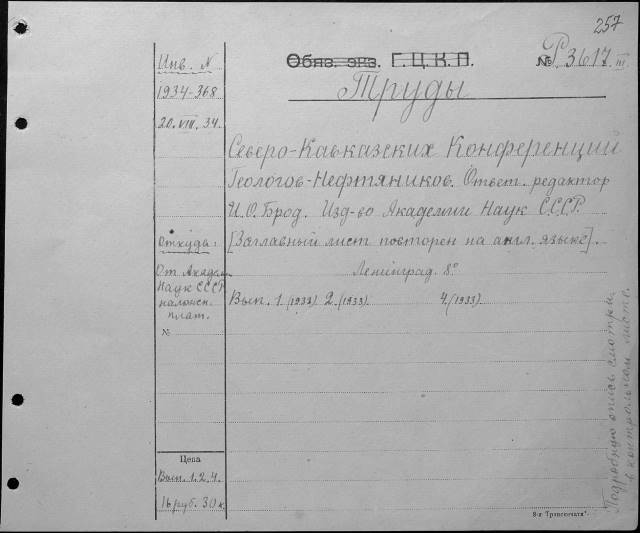 257
Обяз. экз. Г.Ц.К.П.
№ Р 3617 III
Труды
Северо-Кавказских Конференций
Геологов-Нефтяников. Ответ. редактор
И. О. Брод. Изд-во Академии Наук СССР.
[Заглавный лист повторен на англ. языке].
Ленинград. 8°
Вып. 1. (1932) 2. (1933). 4. (1933).
Инв. N
1934-368
20.VIII.34.
Откуда:
От Академ.
Наук СССР
наложен.
плат.
№
Цена
Вып. 1. 2. 4.
16 руб. 30 к.
Подробную опись смотри
в контрольном листе.
8-я Транспечати".